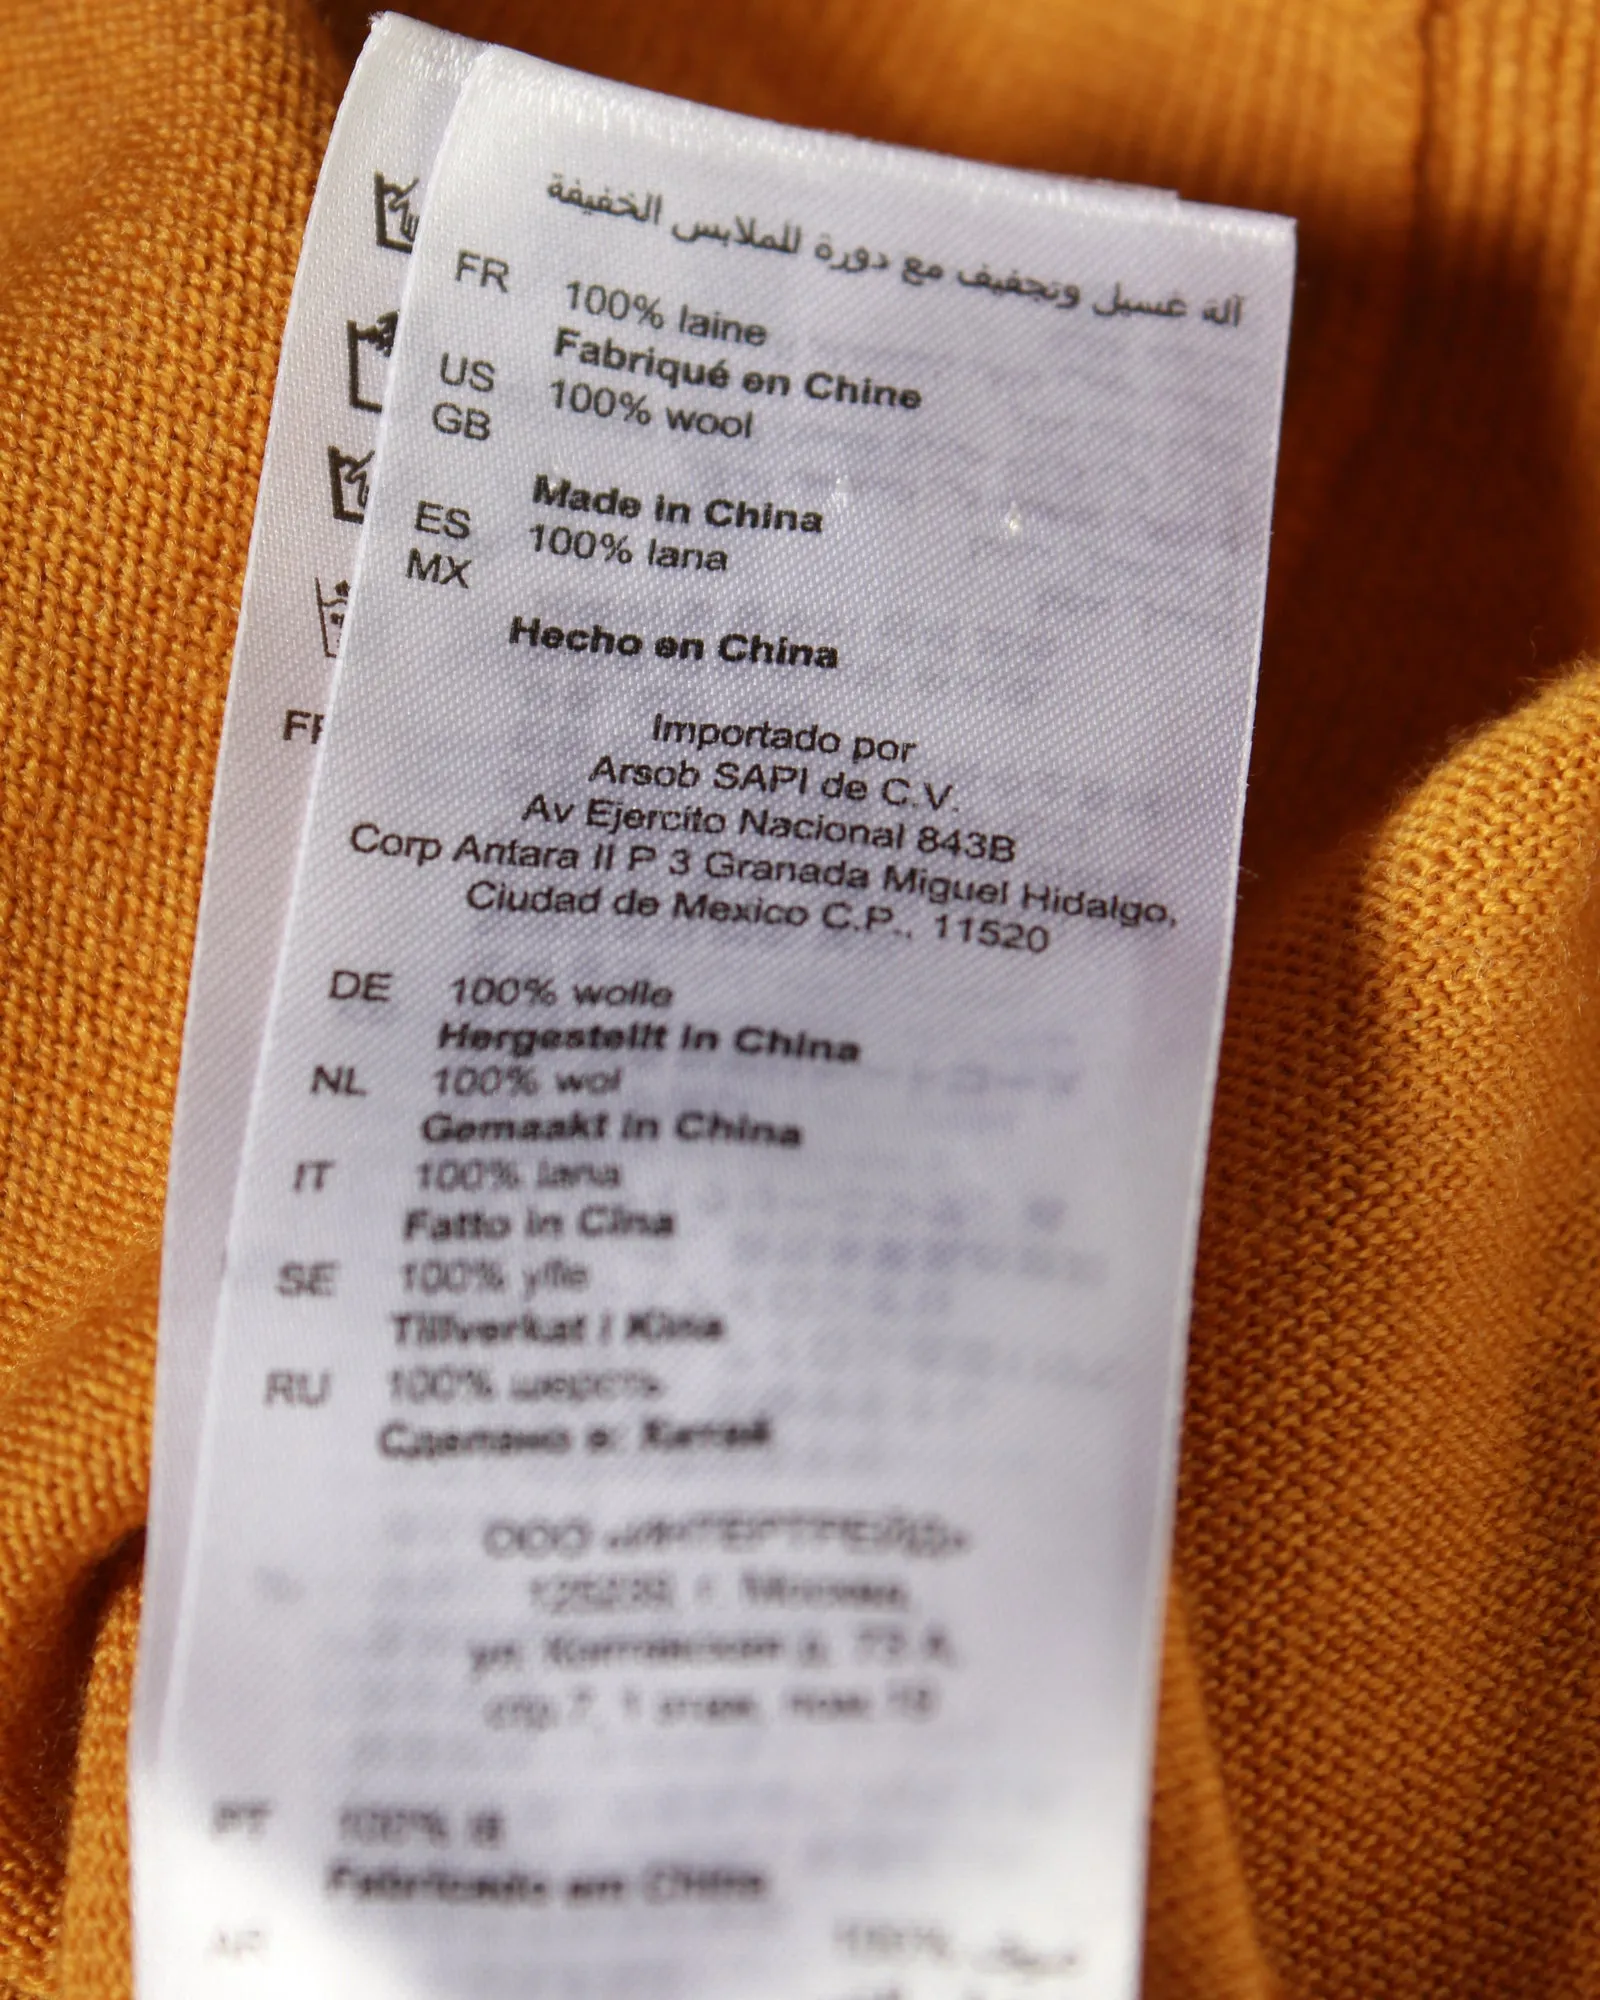 آلة غسيل وتجفيف مع دورة للملابس الخفيفة
FR 100% laine
Fabriqué en Chine
US 100% wool
GB
Made in China
ES 100% lana
MX
Hecho en China
Importado por
Arsob SAPI de C.V.
Av Ejercito Nacional 843B
Corp Antara II P 3 Granada Miguel Hidalgo,
Ciudad de Mexico C.P., 11520
DE 100% wolle
Hergestellt in China
NL 100% wol
Gemaakt in China
IT 100% lana
Fatto in Cina
SE 100% ylle
Tillverkat i Kina
RU 100% шерсть
Сделано в: Китай
ООО «ИНТЕРТРЕЙД»
г. Москва,
1 этаж,
PT 100% lã
Fabricado em China
AR 100% صوف